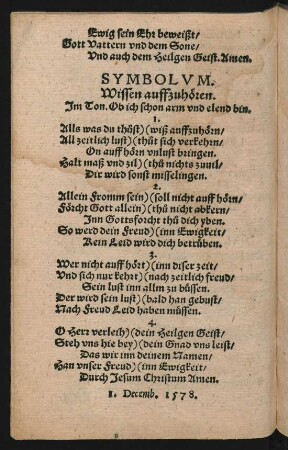 Ewig sein Ehr beweißt/
Gott Vattern vnd dem Sone/
Vnd auch dem Heilgen Geist. Amen.
SYMBOLVM.
Wissen auffzuhören.
Im Ton. Ob ich schon arm vnd elend bin.
1.
Alls was du thůst) (wiß auffzuhörn/
All zeitlich lust) (thůt sich verkehrn/
On auff hörn vnlust bringen.
Halt maß vnd zil) (thů nichts zuuil/
Dir wird sonst misselingen.
2.
Allein Fromm sein) (soll nicht auff hörn/
Förcht Gott allein) (thů nicht abkern/
Inn Gottsforcht thů dich yben.
So werd dein Freud) (inn Ewigkeit/
Kein Leid wird dich betrüben.
3.
Wer nicht auff hört) (inn diser zeit/
Vnd sich nur kehrt) (nach zeitlich freud/
Sein lust inn allm zu büssen.
Der wird sein lust) (bald han gebust/
Nach Freud Leid haben müssen.
4.
O Herr verleih) (dein Heilgen Geist/
Steh vns hie bey) (dein Gnad vns leist/
Das wir inn deinem Namen/
Han vnser Freud) (inn Ewigkeit/
Durch Jesum Christum Amen.
1. Decemb. 1578.